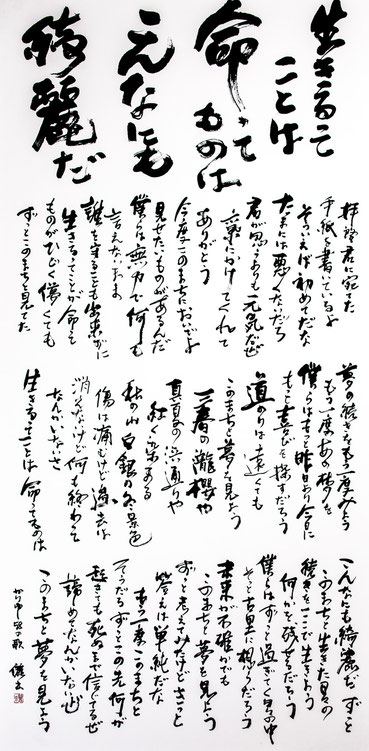 生きるて
ことは
命って
ものは
こんなにも
綺麗だ
拝啓君に宛てた
手紙を書いているよ
そういえば初めてだな
たまには悪くないだろ
君が思うよりも元気だぜ
気にかけてくれて
ありがとう
今度このまちにおいでよ
見せたいものがあるんだ
僕らは無力で何も
言えないまま
誰を守ることも出来ずに
生きるってことが命って
ものがひどく儚くても
ずっとこのまちを見てた
夢の続きをもう一度みよう
もう一度あの夢を
僕らはきっと昨日より今日に
もっと喜びを探すだろう
道のりは遠くても
このまちと夢を見よう
三春の瀧櫻や
真夏の浜通りや
紅く染まる
秋の山 白銀の冬景色
傷は痛むけど過去は
消えないけど何も終わって
なんかいないさ
生きるってことは命ってものは
こんなにも綺麗だ ずっと
このまちと生きた日々の
続きをここで生きよう
何かを残せるだろうか
僕らはずっと過ぎ行く年の中
そっと古里に想うだろう
未来が不確かでも
このまちと夢を見よう
ずっと考えてみたけどきっと
答えは単純だな
もう一度このまちと
そうだろずっとこの先何が
起きても死ぬまで信じてるぜ
諦めてなんかいないぜ
このまちと夢を見よう